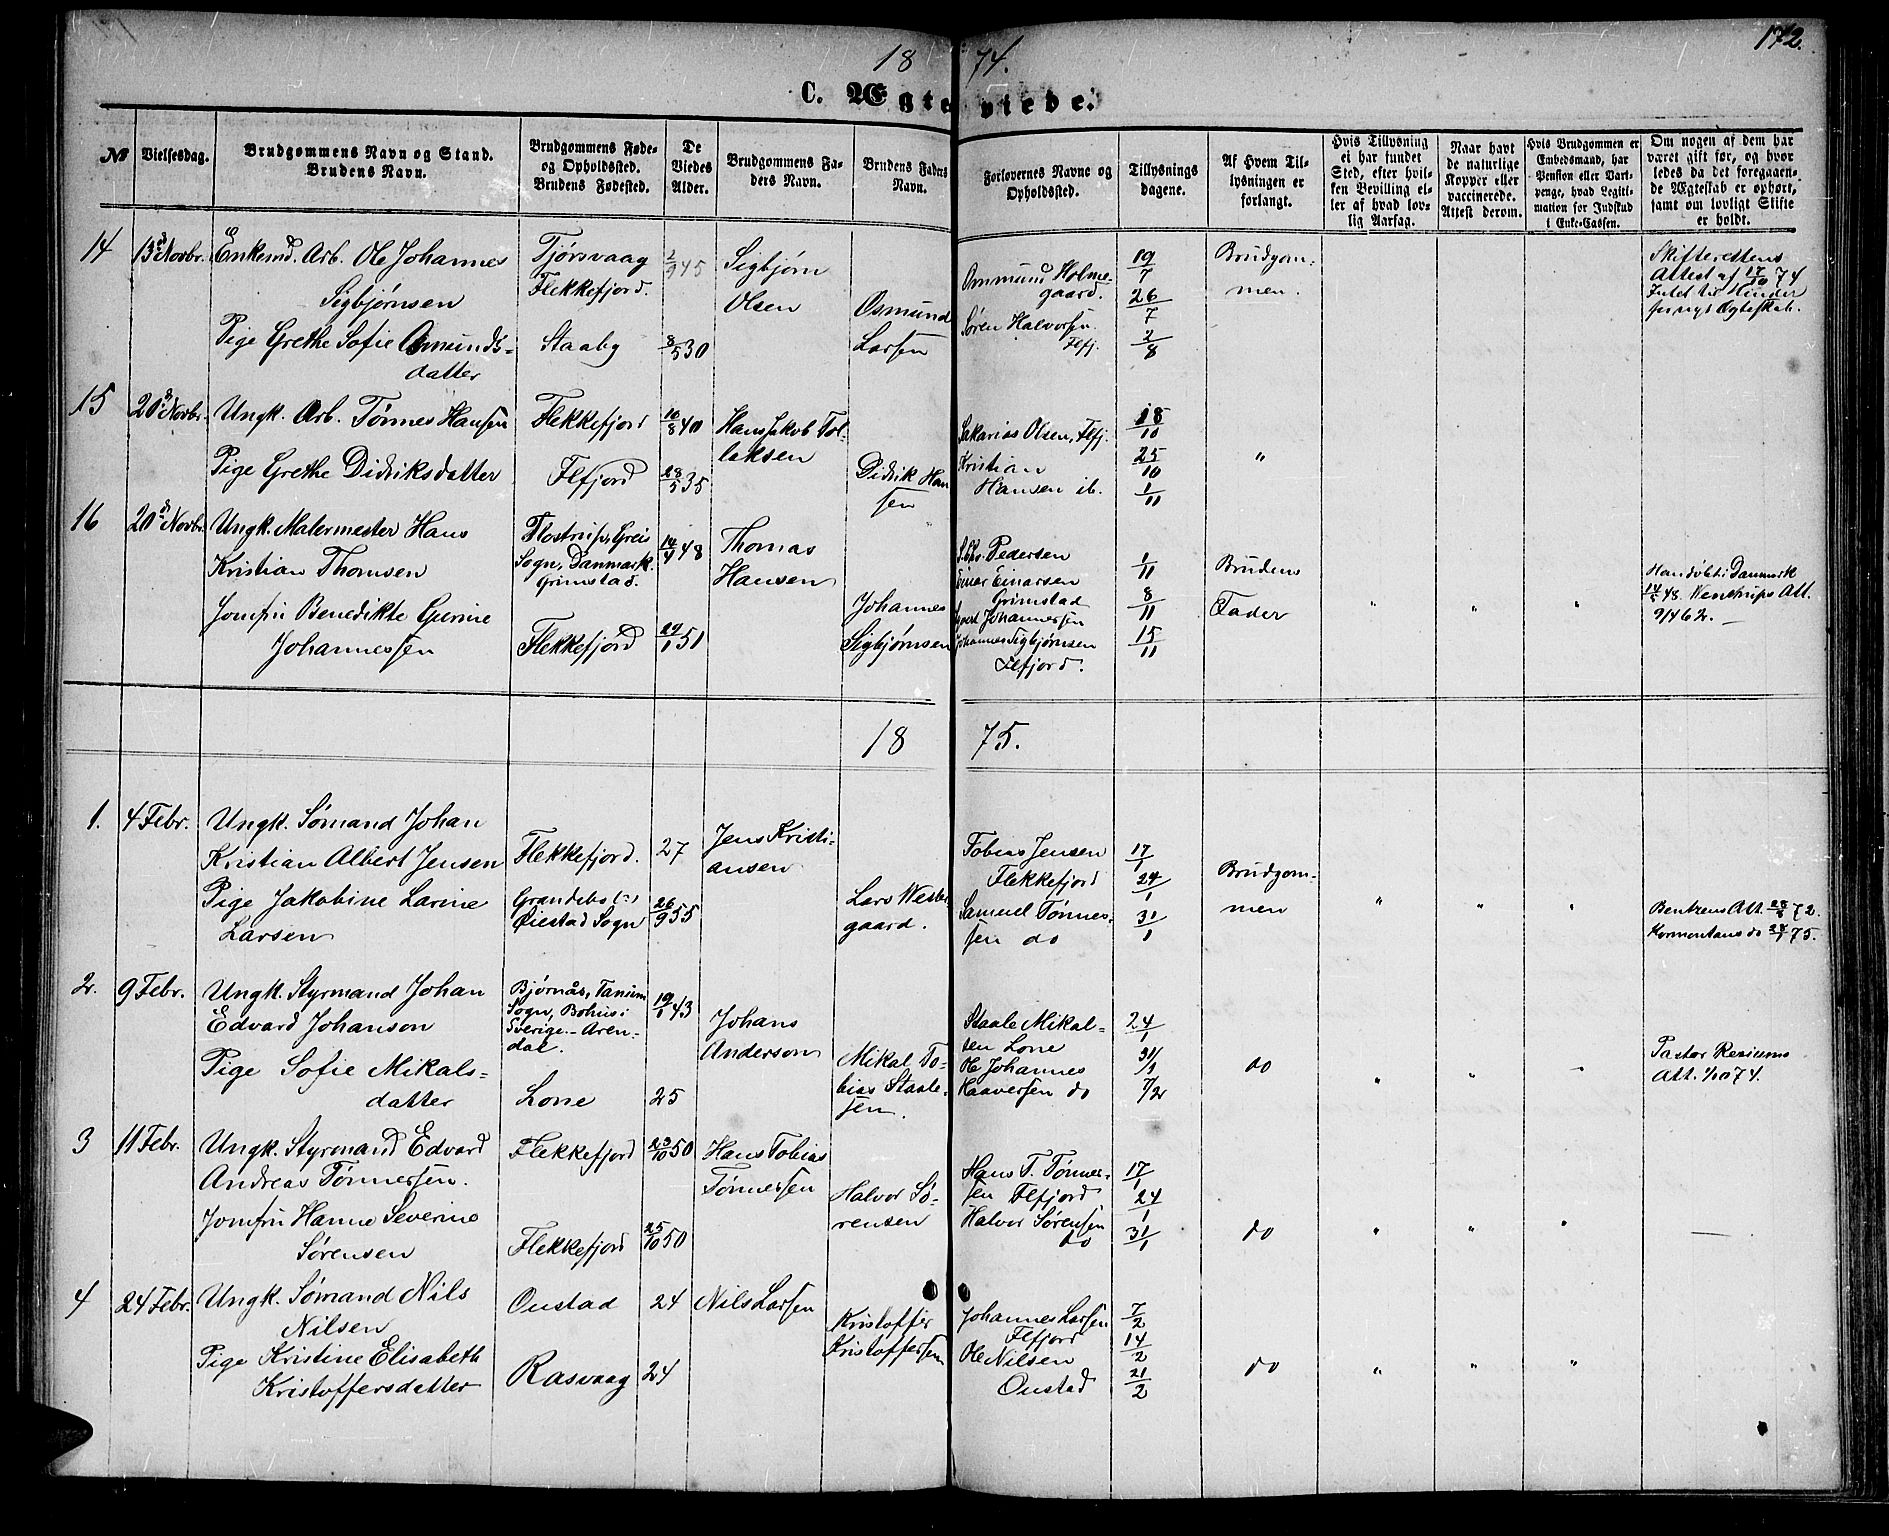 172.
18 74.
C. Ægteviede.
№
Vielsesdag.
Brudgommens Navn og Stand.
Brudens Navn.
Brudgommens Føde-
og Opholdssted.
Brudens Fødested.
De
Viedes
Alder.
Brudgommens Fa-
ders Navn.
Brudens Faders
Navn.
Forlovernes Navne og
Opholdssted.
Tillysnings
dagene.
Af Hvem Til-
lysningen er
forlangt.
Hvis Tillysning
ei har fundet
Sted, efter hvil-
ken Bevilling el-
ler af hvad lov-
lig Aarsag.
Naar havt
de naturlige
Kopper eller
vaccinerede.
Attest derom.
Hvis Brudgommen er
Embedsmand, har
Pension eller Vart-
penge, hvad Legiti-
mation for Indskud
i Enke-Cassen.
Om nogen af dem har
været gift før, og hvor
ledes da det foregaaen-
de Ægteskab er ophørt,
samt om lovligt Skifte
er holdt.
14
13d Novbr.
Enkemd. Arb. Ole Johannes
Sigbjørnsen
Pige Grethe Sofie Osmunds-
datter
Tjørsvaag
Flekkefjord.
Staaby
2/9 45
8/5 30
Sigbjørn
Olsen
Osmund
Larsen
Osmund Holme-
gaard.
Søren Halvorsen
Flfj.
19/7
26/7
2/8
Brudgom-
men.
Skifterettens
Attest af 17/10 74
Intet til Hinder
for nyt Ægteskab.
15
20d Novbr.
Ungk. Arb. Tønnes Hansen
Pige Grethe Didriksdatter
Flekkefjord
Flfjord
10/8 40
28/5 35
Hans Jakob Tol-
laksen
Didrik Han
sen
Sakarias Olsen, Flfj.
Kristian
Hansen ib.
18/10
25/10
1/11
"
16
20d Novbr.
Ungk. Malermester Hans
Kristian Thomsen
Jomfru Benedikte Gurine
Johannessen
Flostrup, Greis
Sogn, Danmark.
Grimstad.
Flekkefjord
14/4 48
29/1 51
Thomas
Hansen
Johannes
Sigbjørnsen
Pedersen
Einar Einarsen
Grimstad
Johannessen
Johannes Sigbjørnsen
Flfjord.
1/11
8/11
15/11
Brudens
Fader
" " "
Danmark
48. Att.
9/4 62.
18 75.
1.
4 Febr.
Ungk. Sømand Johan
Kristian Albert Jensen
Pige Jakobine Larine
Larsen
Flekkefjord.
Grandebo
Øiestad Sogn
27
26/9 55
Jens Kristi-
ansen
Lars West-
gaard.
Tobias Jensen
Flekkefjord
Samuel Tønnes-
sen do
17/1
24/1
31/1
Brudgom-
men
" " "
Bentzens Att. 28/5 72.
do 24/1 75.
2.
9 Febr.
Ungk. Styrmand Johan
Edvard Johanson
Pige Sofie Mikals-
datter
Bjørnås, Tanum
Sogn, Bohus i
Sverige.- Aren-
dal.
Lone
19/1 43
25
Johans
Anderson
Mikal To-
bias Staale-
sen.
Staale Mikal-
sen Lone
Ole Johannes
Haaversen do
24/1
31/1
7/2
do
" " -
Pastor
Att. 1/10 74.
3
11 Febr.
Ungk. Styrmand Edvard
Andreas Tønnessen.
Jomfru Hanne Severine
Sørensen
Flekkefjord
Flekkefjord
23/10 50
25/10 50
Hans Tobias
Tønnessen
Halvor Sø-
rensen
Hans T. Tønnes-
sen Flfjord
Halvor Sørensen
do
17/1
24/1
31/1
do
" " "
4
24 Febr.
Ungk. Sømand Nils
Nilsen
Pige Kristine Elisabeth
Kristoffersdatter
Onstad
Rasvaag
24
24
Nils Larsen
Kristoffer
Kristoffersen
Johannes Larsen
Flfjord
Ole Nilsen
Onstad
7/2
14/2
21/2
do
" " "